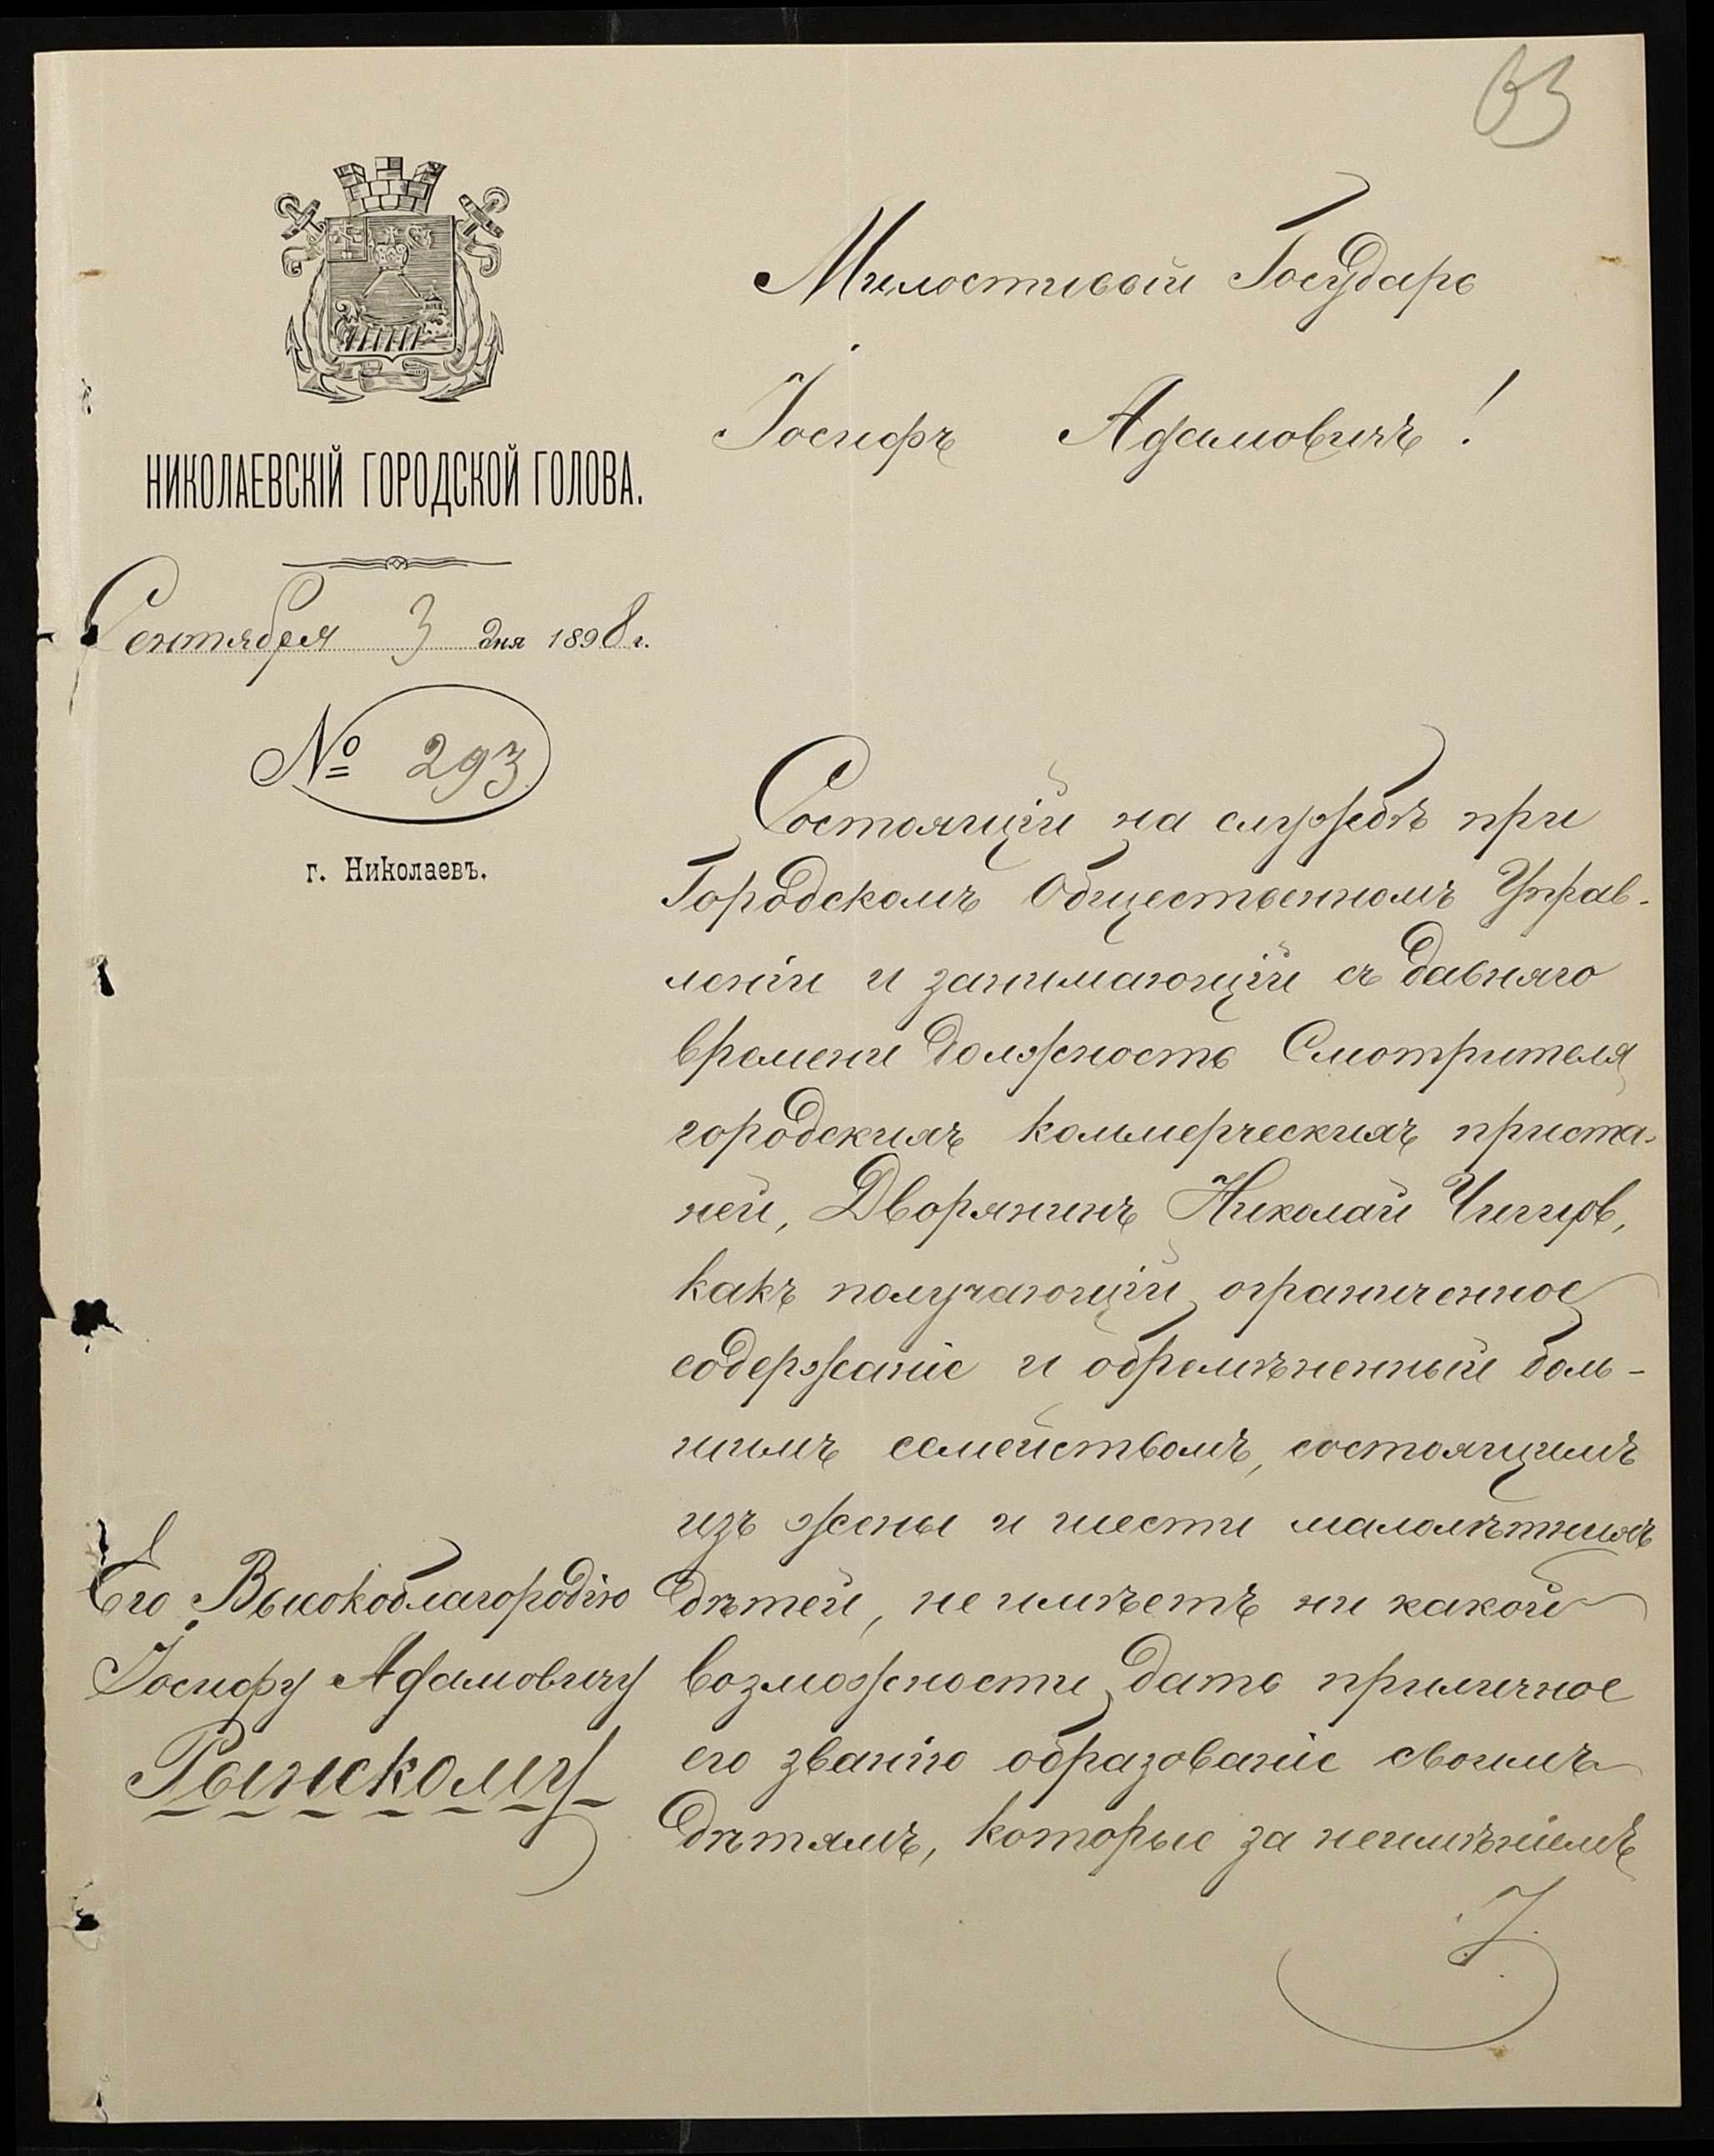 НИКОЛАЕВСКІЙ ГОРОДСКОЙ ГОЛОВА.
Сентября 3 дня 1898 г.
№ 293
г. Николаевъ.
Милостивый Государь
Іосифъ Адамовичъ!
Состоящій на службѣ при
Городскомъ Общественномъ Управ-
леніи и занимающій съ давняго
времени должность Смотрителя
городскихъ коммерческихъ приста-
ней, Дворянинъ Николай
какъ получающій ограниченное
содержаніе и обремѣненный боль-
шимъ семействомъ, состоящимъ
изъ жены и шести малолѣтнихъ
дѣтей, не имѣетъ ни какой
возможности дать приличное
его званію образованіе своимъ
дѣтямъ, которые за неимѣніемъ
Его Высокоблагородію
Іосифу Адамовичу
Рынскому